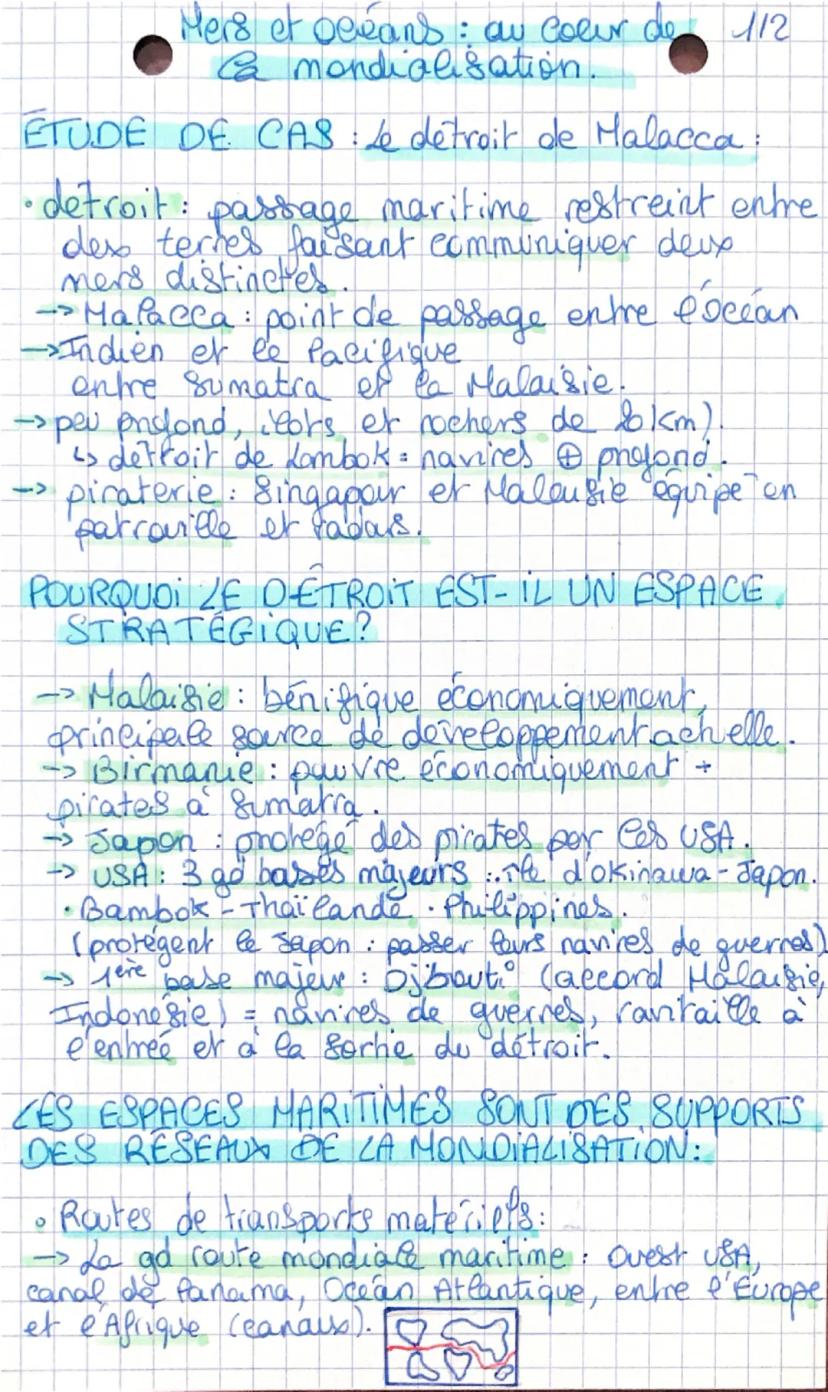 Mers et océans : au coeur de 1/2
la mondialisation.
ÉTUDE DE CAS : Le détroit de Malacca :
• détroit : passage maritime restreint entre
des terres faisant communiquer deux
mers distinctes.
-> Malacca : point de passage entre l'océan
-> Indien et le Pacifique
entre Sumatra et la Malaisie.
-> peu profond, ilots et rochers de 20 km).
↳ détroit de Lombok = navires ⊕ profond.
-> piraterie : Singapour et Malaisie équipé en
patrouille et radars.
POURQUOI LE DÉTROIT EST-IL UN ESPACE
STRATÉGIQUE ?
-> Malaisie : bénifique économiquement,
principale source de développement achelle.
-> Birmanie : pauvre économiquement +
pirates à Sumatra.
-> Japon : protégé des pirates par les USA.
-> USA : 3 gd bases majeurs : île d'Okinawa - Japon.
• Bambok - Thaïlande • Philippines.
(protègent le Japon : passer leurs navires de guerres)
-> 1ère base majeur : Djibouti (accord Malaisie,
Indonésie) = navires de guerres, ravitaille à
l'entrée et à la sortie du détroit.
LES ESPACES MARITIMES SONT DES SUPPORTS
DES RÉSEAUX DE LA MONDIALISATION :
• Routes de transports matériels :
-> La gd route mondiale maritime : Ouest USA,
canal de Panama, Océan Atlantique, entre l'Europe
et l'Afrique (canaux).